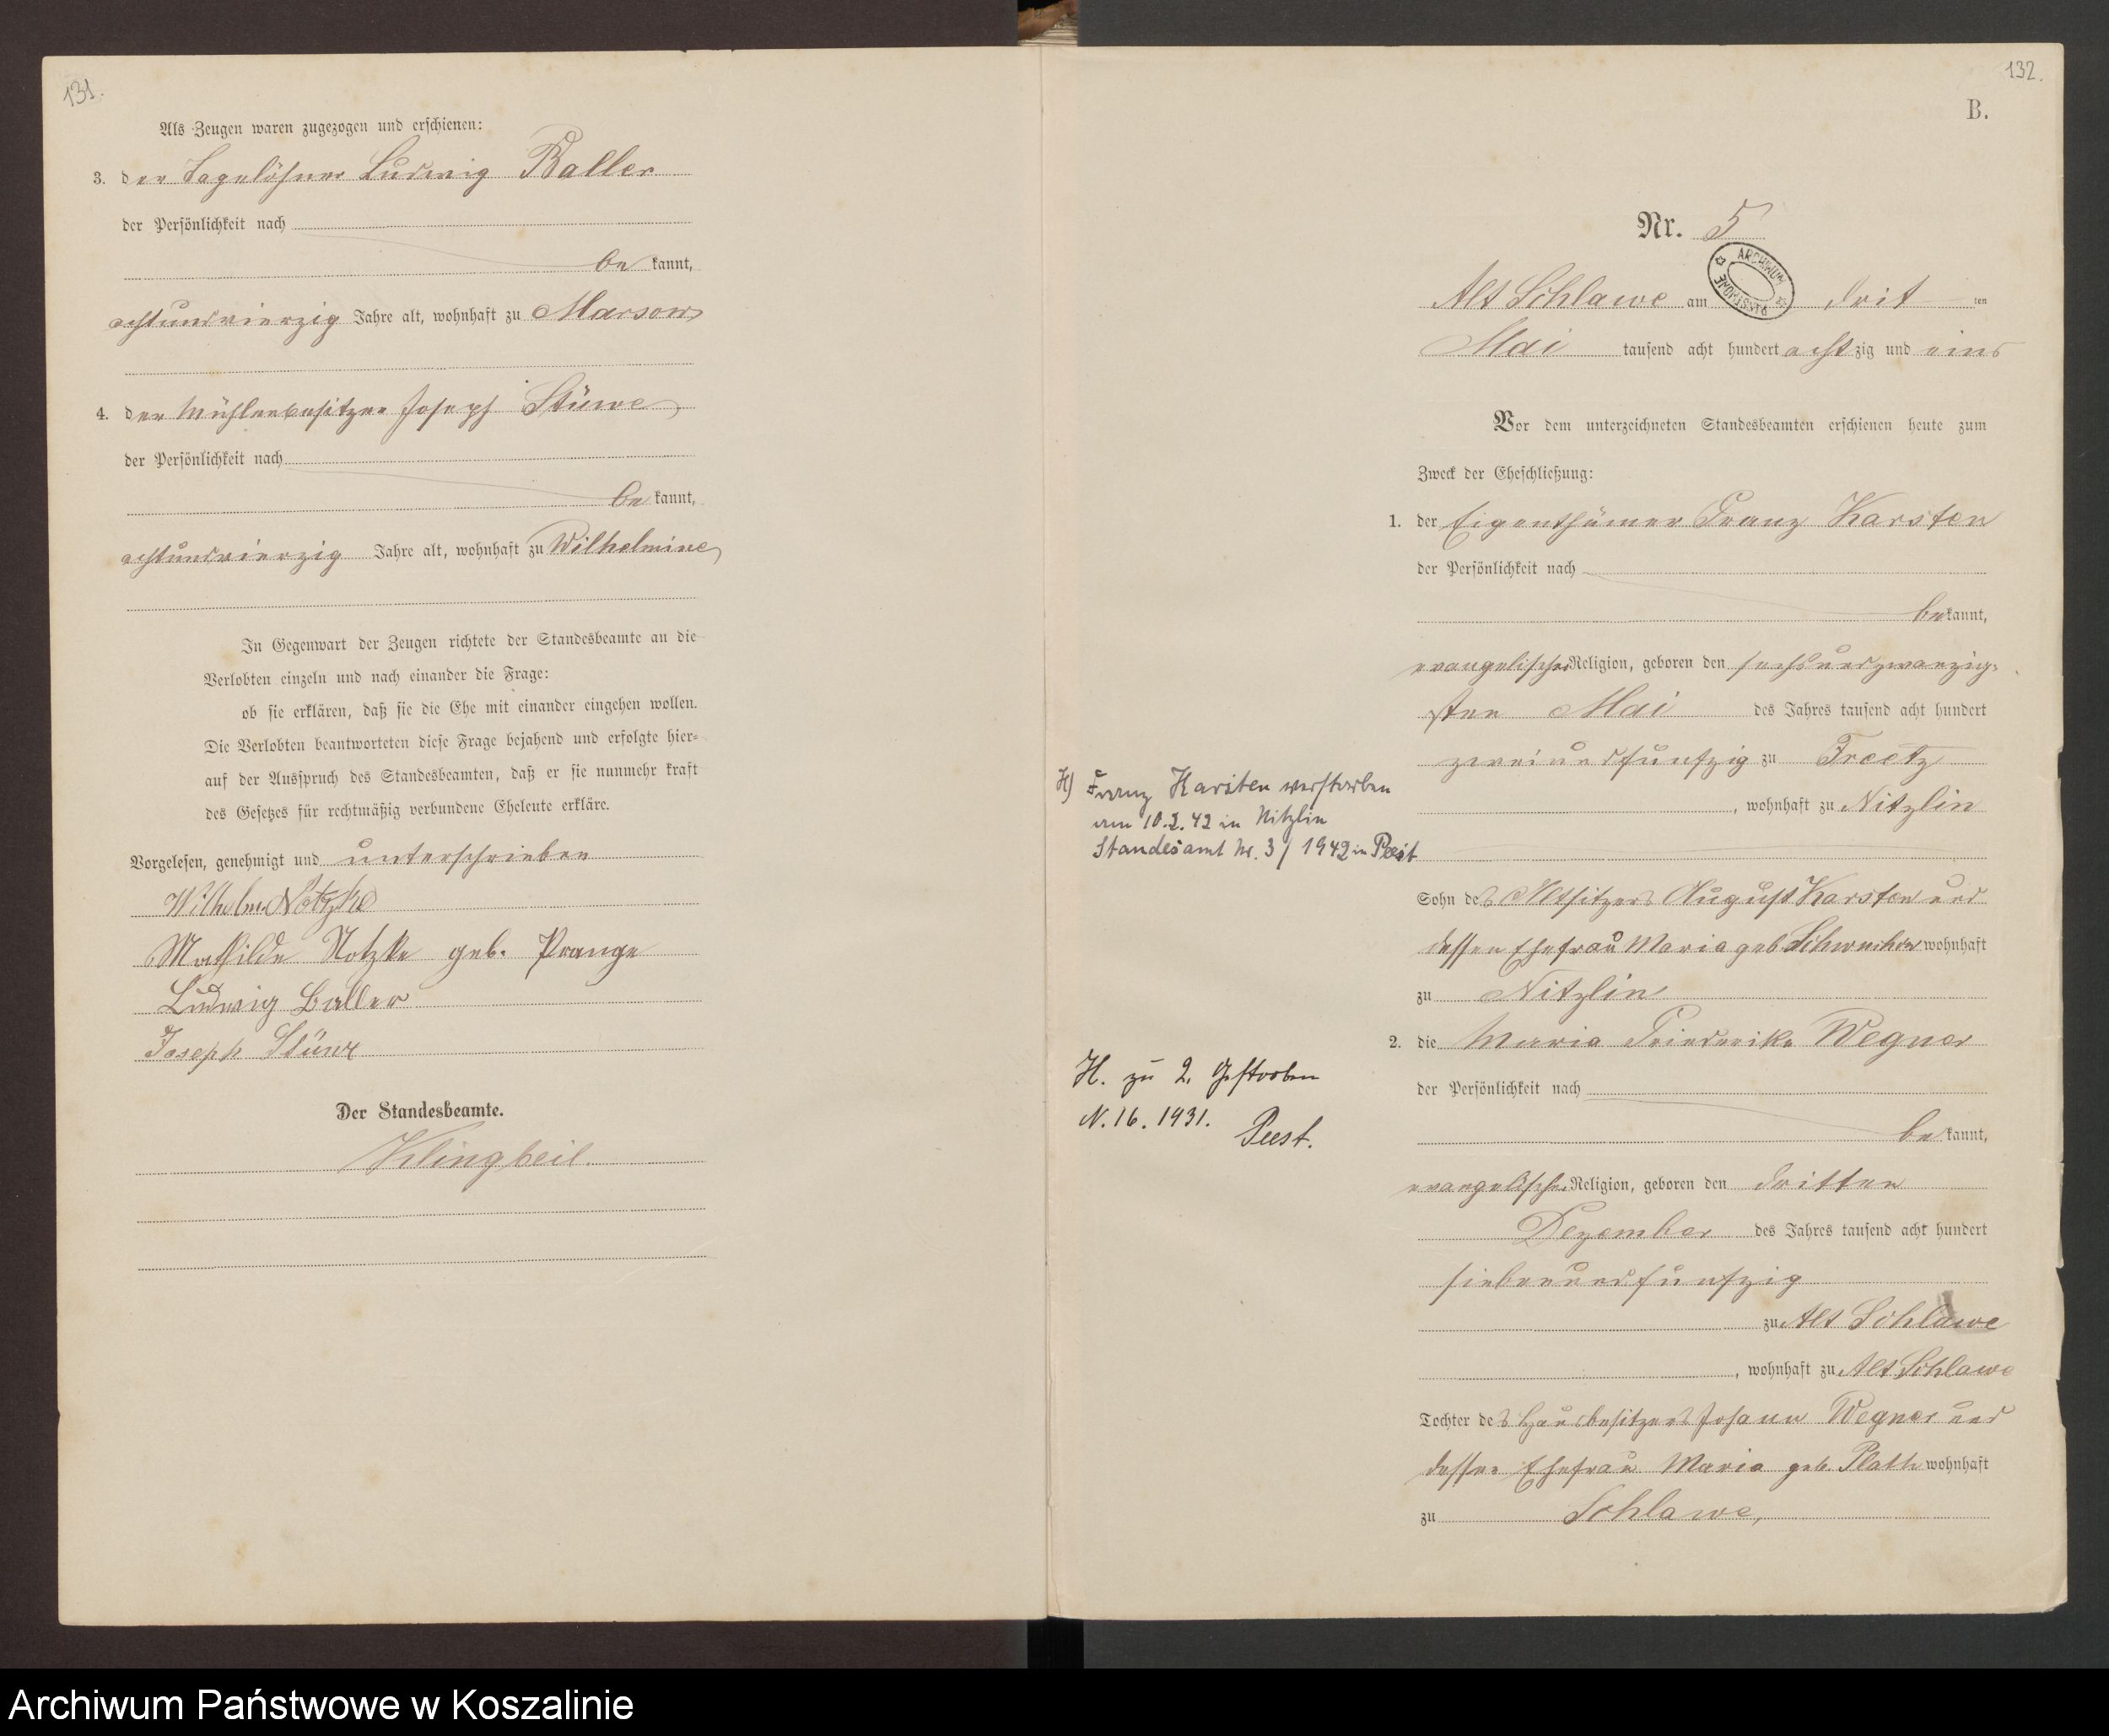 131.
Als Zeugen waren zugezogen und erschienen:
3. der Tagelöhner Ludwig Baller
der Persönlichkeit nach
be kannt,
achtundvierzig Jahre alt, wohnhaft zu Marsow
4. der Mühlenbesitzer Joseph Stüwe
der Persönlichkeit nach
be kannt,
achtundvierzig Jahre alt, wohnhaft zu Wilhelmine
In Gegenwart der Zeugen richtete der Standesbeamte an die
Verlobten einzeln und nach einander die Frage:
ob sie erklären, daß sie die Ehe mit einander eingehen wollen.
Die Verlobten beantworteten diese Frage bejahend und erfolgte hier-
auf der Ausspruch des Standesbeamten, daß er sie nunmehr kraft
des Gesetzes für rechtmäßig verbundene Eheleute erkläre.
Vorgelesen, genehmigt und unterschrieben
Wilhelm Notzke
Mathilde Notzke geb. Prange
Ludwig Baller
Joseph Stüwe
Der Standesbeamte.
Klingbeil
132.
B.
Nr. 5
ARCHIWUM
Alt Schlawe am drit ten
Mai tausend acht hundert acht zig und eins
Vor dem unterzeichneten Standesbeamten erschienen heute zum
Zweck der Eheschließung:
1. der Eigenthümer Franz Karsten
der Persönlichkeit nach
be kannt,
evangelischer Religion, geboren den sechsundzwanzig-
sten Mai des Jahres tausend acht hundert
zweiundfünfzig zu Freetz
, wohnhaft zu Nitzlin
Sohn des Altsitzers August Karsten und
dessen Ehefrau Maria geb. wohnhaft
zu Nitzlin
2. die Maria Friederike Wegner
der Persönlichkeit nach
be kannt,
evangelischer Religion, geboren den dritten
Dezember des Jahres tausend acht hundert
siebenundfünfzig
zu Alt Schlawe
, wohnhaft zu Alt Schlawe
Tochter des Hausbesitzers Johann Wegner und
dessen Ehefrau Maria geb. Plath wohnhaft
zu Schlawe,
H) Franz Karsten verstorben
am 10.2.42 in Nitzlin
Standesamt Nr. 3/1942 in Peest
H. zu 2. Gestorben
N. 16. 1931. Peest.
Archiwum Państwowe w Koszalinie